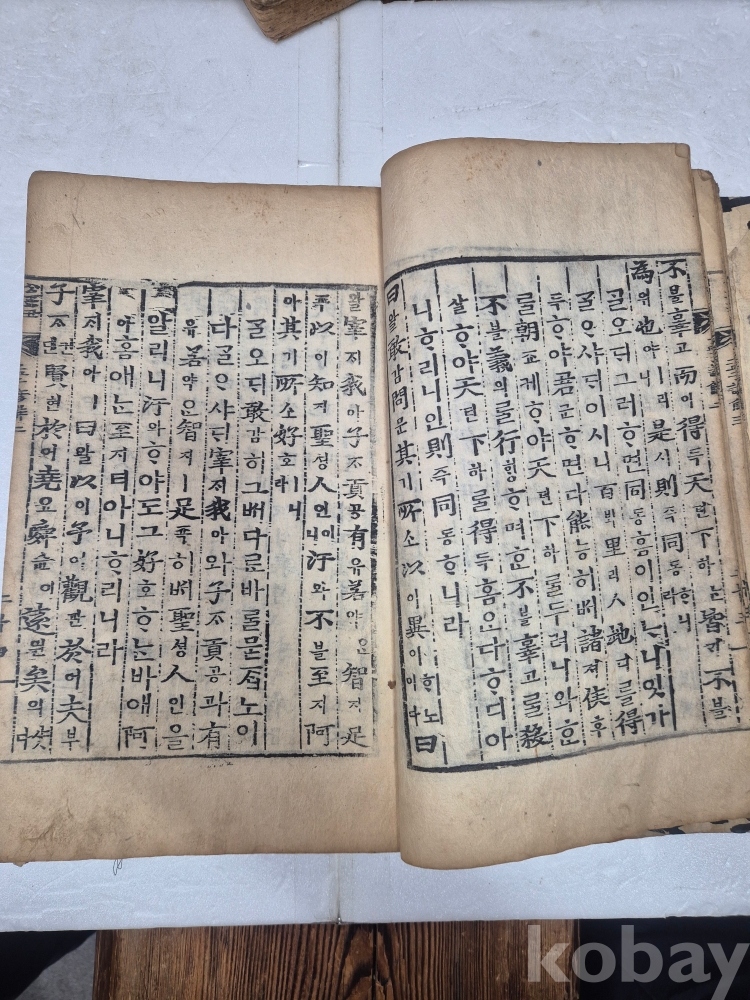 不블辜고而이得득天텬下하는皆개不블
為위也야ㅣ니是시則즉同동ᄒᆞ니라
ᄀᆞᆯ오ᄃᆡ그러ᄒᆞ면同동ᄒᆞᆷ이인ᄂᆞ니잇가
ᄀᆞᆯᄋᆞ샤ᄃᆡ이시니百ᄇᆡᆨ里리ㅅ地디ᄅᆞᆯ得
득ᄒᆞ야君군ᄒᆞ면다能능히ᄡᅥ諸져侯후
ᄅᆞᆯ朝됴케ᄒᆞ야天텬下하ᄅᆞᆯ두려니와ᄒᆞᆫ
不블義의ᄅᆞᆯ行ᄒᆡᆼᄒᆞ며ᄒᆞᆫ不블辜고ᄅᆞᆯ殺
살ᄒᆞ야天텬下하ᄅᆞᆯ得득ᄒᆞᆷ은다ᄒᆞ디아
니ᄒᆞ리니인則즉同동ᄒᆞ니라
曰왈敢감問문其기所소以이異이ᄒᆞ노이다曰
왈宰ᄌᆡ我아子ᄌᆞ貢공有유若약은智지足
죡以이知지聖셩人인이니汙와不블至지阿
아其기所소好호ㅣ니라
ᄀᆞᆯ오ᄃᆡ敢감히그ᄡᅥ다ᄅᆞᆫ바ᄅᆞᆯ묻ᄌᆞᆸ노이
다ᄀᆞᆯᄋᆞ샤ᄃᆡ宰ᄌᆡ我아와子ᄌᆞ貢공과有
유若약은智지ㅣ足죡히ᄡᅥ聖셩人인을
알리니汙와ᄒᆞ야도그好호ᄒᆞᄂᆞᆫ바애阿
아ᄒᆞᆷ애ᄂᆞᆫ至지티아니ᄒᆞ리니라
宰ᄌᆡ我아ㅣ曰왈以이予여觀관於어夫부
子ᄌᆞ컨댄賢현於어堯요舜슌이遠원矣의샷다
kobay